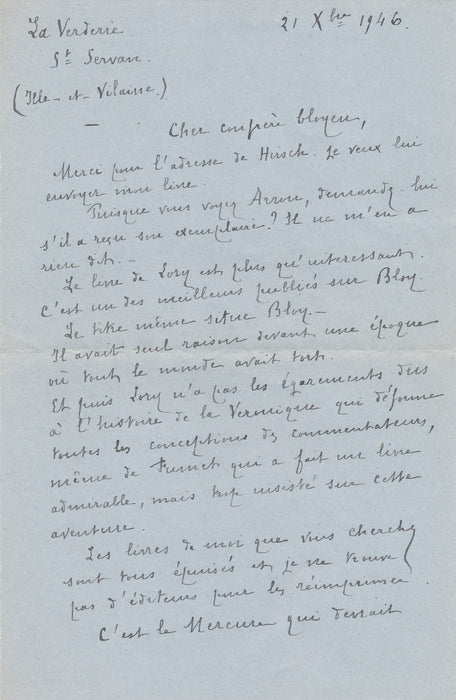 La Verderie
St Servan.
(Ille-et-Vilaine.)
21 Xbre 1946.
Cher confrère bloyen,
Merci pour l'adresse de Hirsch. Je veux lui
envoyer mon livre.
Puisque vous voyez Arrou, demandez-lui
s'il a reçu son exemplaire? Il ne m'en a
rien dit. -
Le livre de Lory est plus qu'intéressant.
C'est un des meilleurs publiés sur Bloy.
Le titre même situe Bloy. -
Il avait seul raison devant une époque
où tout le monde avait tort.
Et puis Lory n'a pas les égarements dus
à l'histoire de la Véronique qui déforme
toutes les conceptions des commentateurs,
même de Fumet qui a fait un livre
admirable, mais trop insisté sur cette
aventure.
Les livres de moi que vous cherchez
sont tous épuisés et je ne trouve
pas d'éditeurs pour les réimprimer.
C'est le Mercure qui devrait